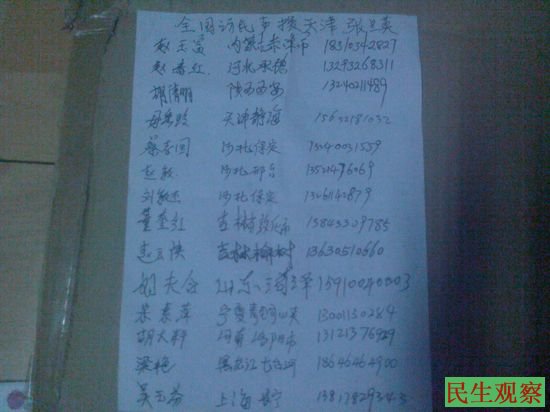 全国访民声援天津 张兰英
赵玉富 内蒙古赤峰市 18310342827
赵春红 河北承德 13293268311
胡清明 陕西西安 13240211489
天津静海 15632181032
蔡春国 河北保定 13240031559
赵敏 河北邢台 13521496069
刘敏杰 河北保定 13261142879
董奎红 吉林敦化市 15843309785
赵云侠 吉林榆树 13630510660
山东 15910040003
宁夏青铜峡 13001130284
胡大料 河南 市 13121376929
梁艳 黑龙江七台河 18646464900
吴玉芬 上海长宁 13817829343
民生观察